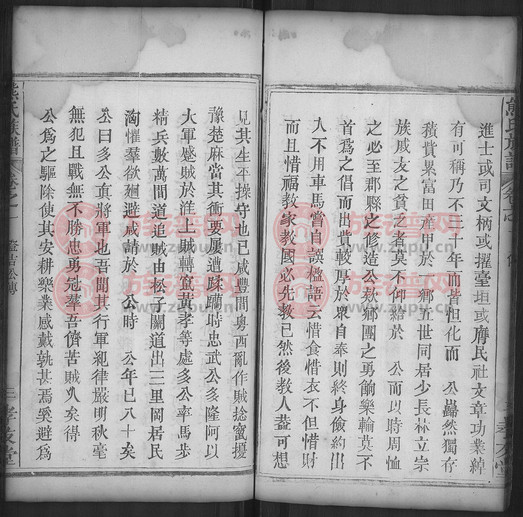 進士或司文柄或擢臺垣或膺民社文章功業綽
有可稱乃不二十年而皆怛化而　公巋然獨存
積貲累富田產甲於一鄉五世同居少長林立宗
族戚友之貧乏者莫不仰給於　公而以時周恤
之必至郡縣之修造公款鄉團之勇餉樂輸莫不
首爲公之慷慨而尚義較厚於衆自奉則終身儉約出
入不用車馬嘗言誤橘語云惜食惜衣不但惜財
而且惜福教家教國必先教己然後教人蓋可想
見其生平操守也已咸豐間粵西亂作賊捻竄擾
豫楚麻當其衝要屢遭蹂躪時忠武公多隆阿以
大軍蹙賊於淮上賊轉竄黃孝等處多公率馬步
精兵數萬間道追賊由松子關道出三里岡居民
洶懼羣欲迴避咸請於　公時　公年已八十矣
公曰多公真將軍也吾聞其行軍紀律嚴明秋毫
無犯且戰無不勝忠勇冠羣吾儕苦賊久矣得
公爲之驅除使其安耕樂業感戴孰甚焉奚避爲
熊氏族譜　卷之一　證吉公傳
三　孝友堂
族谱网
www.zupu.cn